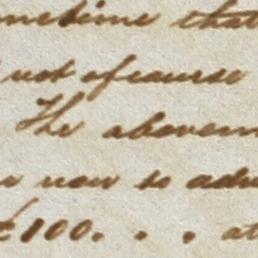 ometime that
not of course
The abovem
now so adv
£100. . . at